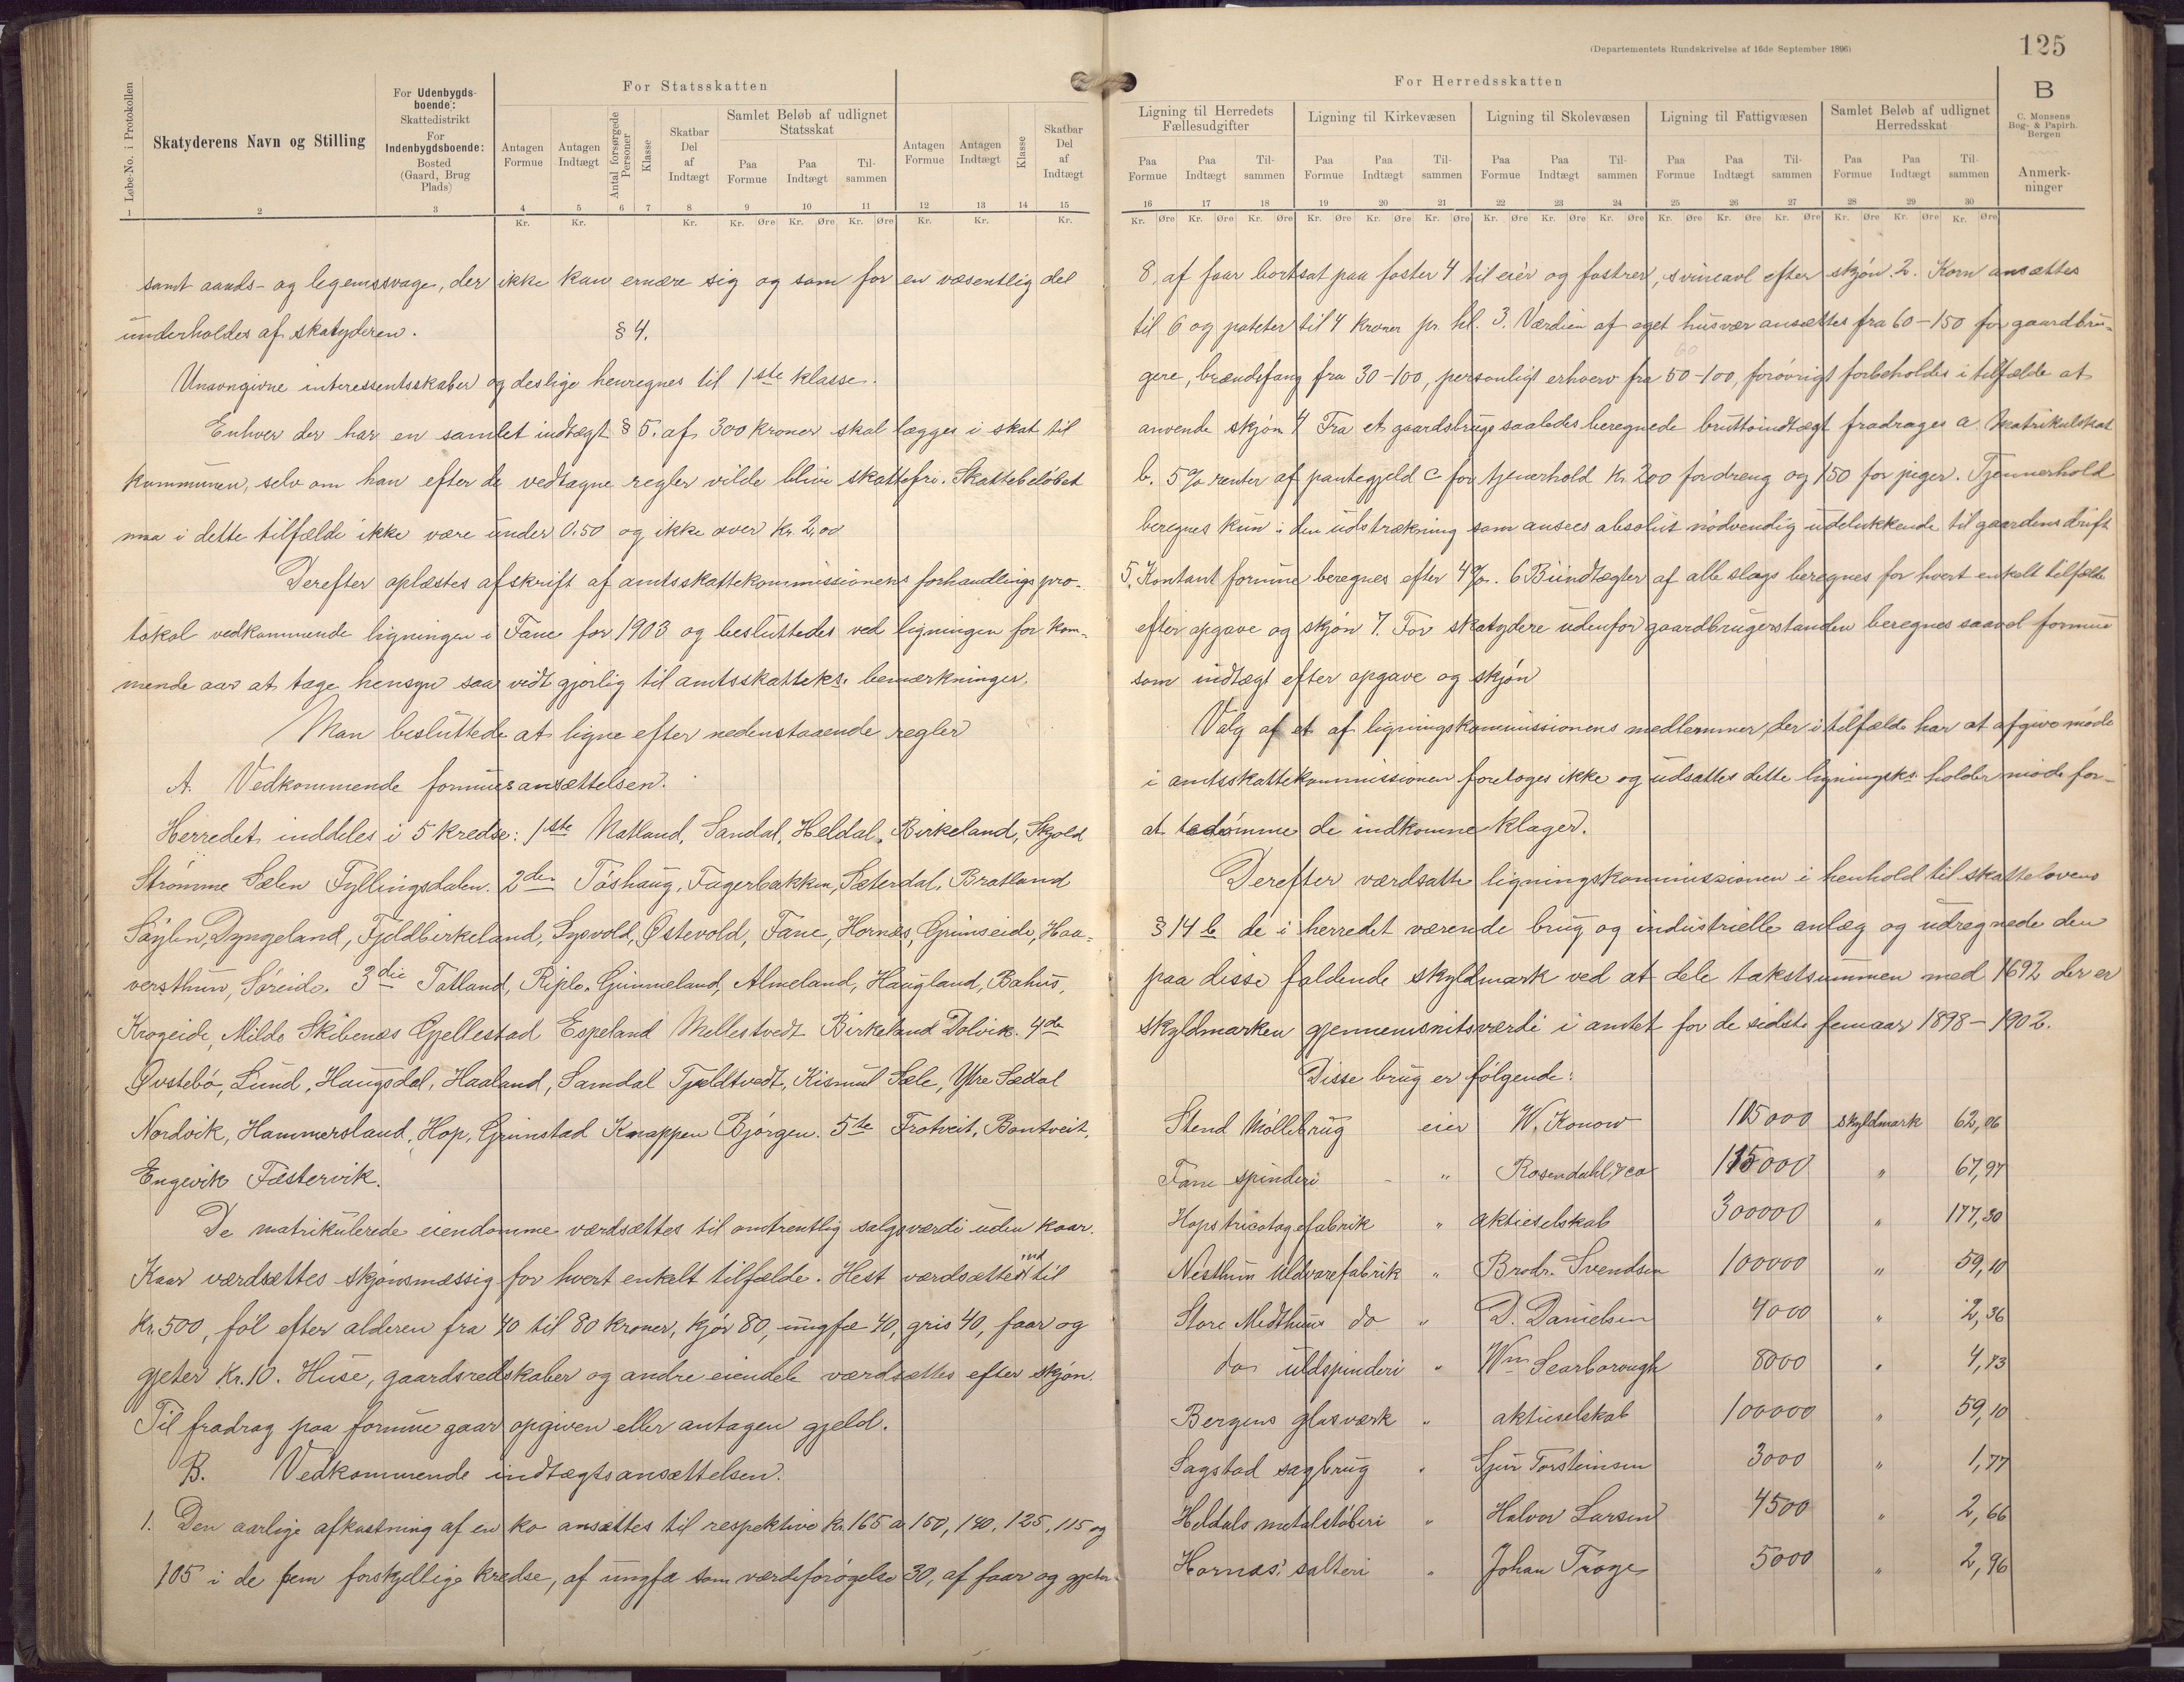 (Departementets Rundskrivelse af 16de September 1896)
125
Løbe-No. i Protokollen
Skatyderens Navn og Stilling
For Udenbygds-
boende:
Skattedistrikt
For
Indenbygdsboende:
Bosted
(Gaard, Brug
Plads)
For Statsskatten
Antagen Formue
Antagen Indtægt
Antal forsørgede Personer
Klasse
Skatbar Del af Indtægt
Samlet Beløb af udlignet Statsskat
Paa Formue
Paa Indtægt
Til-sammen
Antagen Formue
Antagen Indtægt
Klasse
Skatbar Del af Indtægt
1 2 3 4 5 6 7 8 9 10 11 12 13 14 15
Kr. Kr. Kr. Kr. Øre Kr. Øre Kr. Øre Kr. Kr. Kr.
samt aands- og legemssvage, der ikke kan ernære sig og som for en væsentlig del
underholdes af skatyderen.
§ 4.
Unavngivne interessentskaber og deslige henregnes til 1ste klasse.
Enhver der har en samlet indtægt § 5. af 300 kroner skal lægges i skat til
kommunen, selv om han efter de vedtagne regler vilde blive skattefri. Skattebeløbet
maa i dette tilfælde ikke være under 0.50 og ikke over kr. 2,00
Derefter oplæstes afskrift af amtsskattekommissionens forhandlingspro-
tokol vedkommende ligningen i Fane for 1903 og besluttedes ved ligningen for kom-
mende aar at tage hensyn saa vidt gjørlig til amtsskatteks. bemærkninger.
Man besluttede at ligne efter nedenstaaende regler
A. Vedkommende formuesansættelsen.
Herredet inddeles i 5 kredse: 1ste Natland, Sandal, Heldal, Birkeland, Skjold
Strømme Sælen Fyllingsdalen. 2den Tøshaug, Fagerbakken, Sæterdal, Bratland
Søylen, Dyngeland, Fjeldbirkeland, Lysvold, Østevold, Fane, Hornæs, Grimseide, Haa-
versthun, Søreide. 3die Totland, Riple, Gimmeland, Almeland, Haugland, Bahus,
Krogeide, Milde Skibenæs Gjellestad Espeland Mellestvedt Birkeland Dolvik. 4de
Øvstebø, Lund, Haugsdal, Haaland, Samdal Tjeldtvedt, Kismul Sæle, Ytre Sædal
Nordvik, Hammersland, Hop, Grimstad Knappen Bjørgen. 5te Frotveit, Bontveit,
Engevik Fæstervik.
De matrikulerede eiendomme værdsættes til omtrentlig salgsværdi uden kaar.
Kaar værdsættes skjønsmæssig for hvert enkelt tilfælde. Hest værdsættes indtil
Kr. 500, føl efter alderen fra 40 til 80 kroner, kjør 80, ungfæ 40, gris 40, faar og
gjeter kr. 10. Huse, gaardsredskaber og andre eiendele værdsættes efter skjøn.
Til fradrag paa formue gaar opgiven eller antagen gjeld.
B. Vedkommende indtægtsansættelsen.
1. Den aarlige afkastning af en ko ansættes til respektive kr. 165 a 150, 140, 125, 115 og
105 i de fem forskjellige kredse, af ungfæ som værdiforøgelse 30, af faar og gjeter
For Herredsskatten
B
C. Monsens
Bog- & Papirh.
Bergen
Anmerk-
ninger
Ligning til Herredets Fællesudgifter
Ligning til Kirkevæsen
Ligning til Skolevæsen
Ligning til Fattigvæsen
Samlet Beløb af udlignet Herredsskat
Paa Formue Paa Indtægt Til-sammen Paa Formue Paa Indtægt Til-sammen Paa Formue Paa Indtægt Til-sammen Paa Formue Paa Indtægt Til-sammen Paa Formue Paa Indtægt Til-sammen
16 17 18 19 20 21 22 23 24 25 26 27 28 29 30
Kr. Øre Kr. Øre Kr. Øre Kr. Øre Kr. Øre Kr. Øre Kr. Øre Kr. Øre Kr. Øre Kr. Øre Kr. Øre Kr. Øre Kr. Øre Kr. Øre Kr. Øre
8, af faar bortsat paa foster 4 til eier og fostrer, svineavl efter skjøn. 2. Korn ansættes
til 6 og poteter til 4 kroner pr. hl. 3. Værdien af eget husvær ansættes fra 60-150 for gaardbru-
60
gere, brændefang fra 30-100, personligt erhverv fra 50-100, forøvrigt forbeholdes i tilfælde at
anvende skjøn 4 Fra et gaardsbrugs saaledes beregnede bruttoindtægt fradrages a. Matrikulskat
b. 5% renter af pantegjeld c for tjenerhold kr. 200 for dreng og 150 for piger. Tjennerhold
beregnes kun i den udstrækning som ansees absolut nødvendig udelukkende til gaardens drift
5. Kontant formue beregnes efter 4%. 6 Biindtægter af alle slags beregnes for hvert enkelt tilfælde
efter opgave og skjøn 7. For skatydere udenfor gaardbrugerstanden beregnes saavel formue
som indtægt efter opgave og skjøn
Valg af et af ligningskommissionens medlemmer, der i tilfælde har at afgive møde
i amtsskattekommissionen foretoges ikke og udsattes dette ligningsks. holder møde for
at bedømme de indkomne klager.
Derefter værdsatte ligningskommissionen i henhold til skattelovens
§ 14 b de i herredet værende brug og industrielle anlæg og udregnede den
paa disse faldende skyldmark ved at dele takstsummen med 1692 der er
skyldmarken gjennemsnitsværdi i amtet for de sidste fem aar 1898-1902.
Disse brug er følgende:
Stend Møllebrug eier W. Konow 105000 skyldmark 62,06
Fane spinderi - " Rosendahl & co 115000 " 67,97
Hops tricotagefabrik " aktieselskab 300000 " 177,30
Nesthun Uldvarefabrik " Brødr. Svendsen 100000 " 59,10
Store Midthun do " D. Danielsen 4000 " 2,36
do uldspinderi " Wm Scarborough 8000 " 4,73
Bergens glasværk " aktieselskab 100000 " 59,10
Sagstad sagbrug " Sjur Torsteinsen 3000 " 1,77
Heldals metalstøberi " Halvor Larsen 4500 " 2,66
Hornæs salteri " Johan Troye 5000 " 2,96